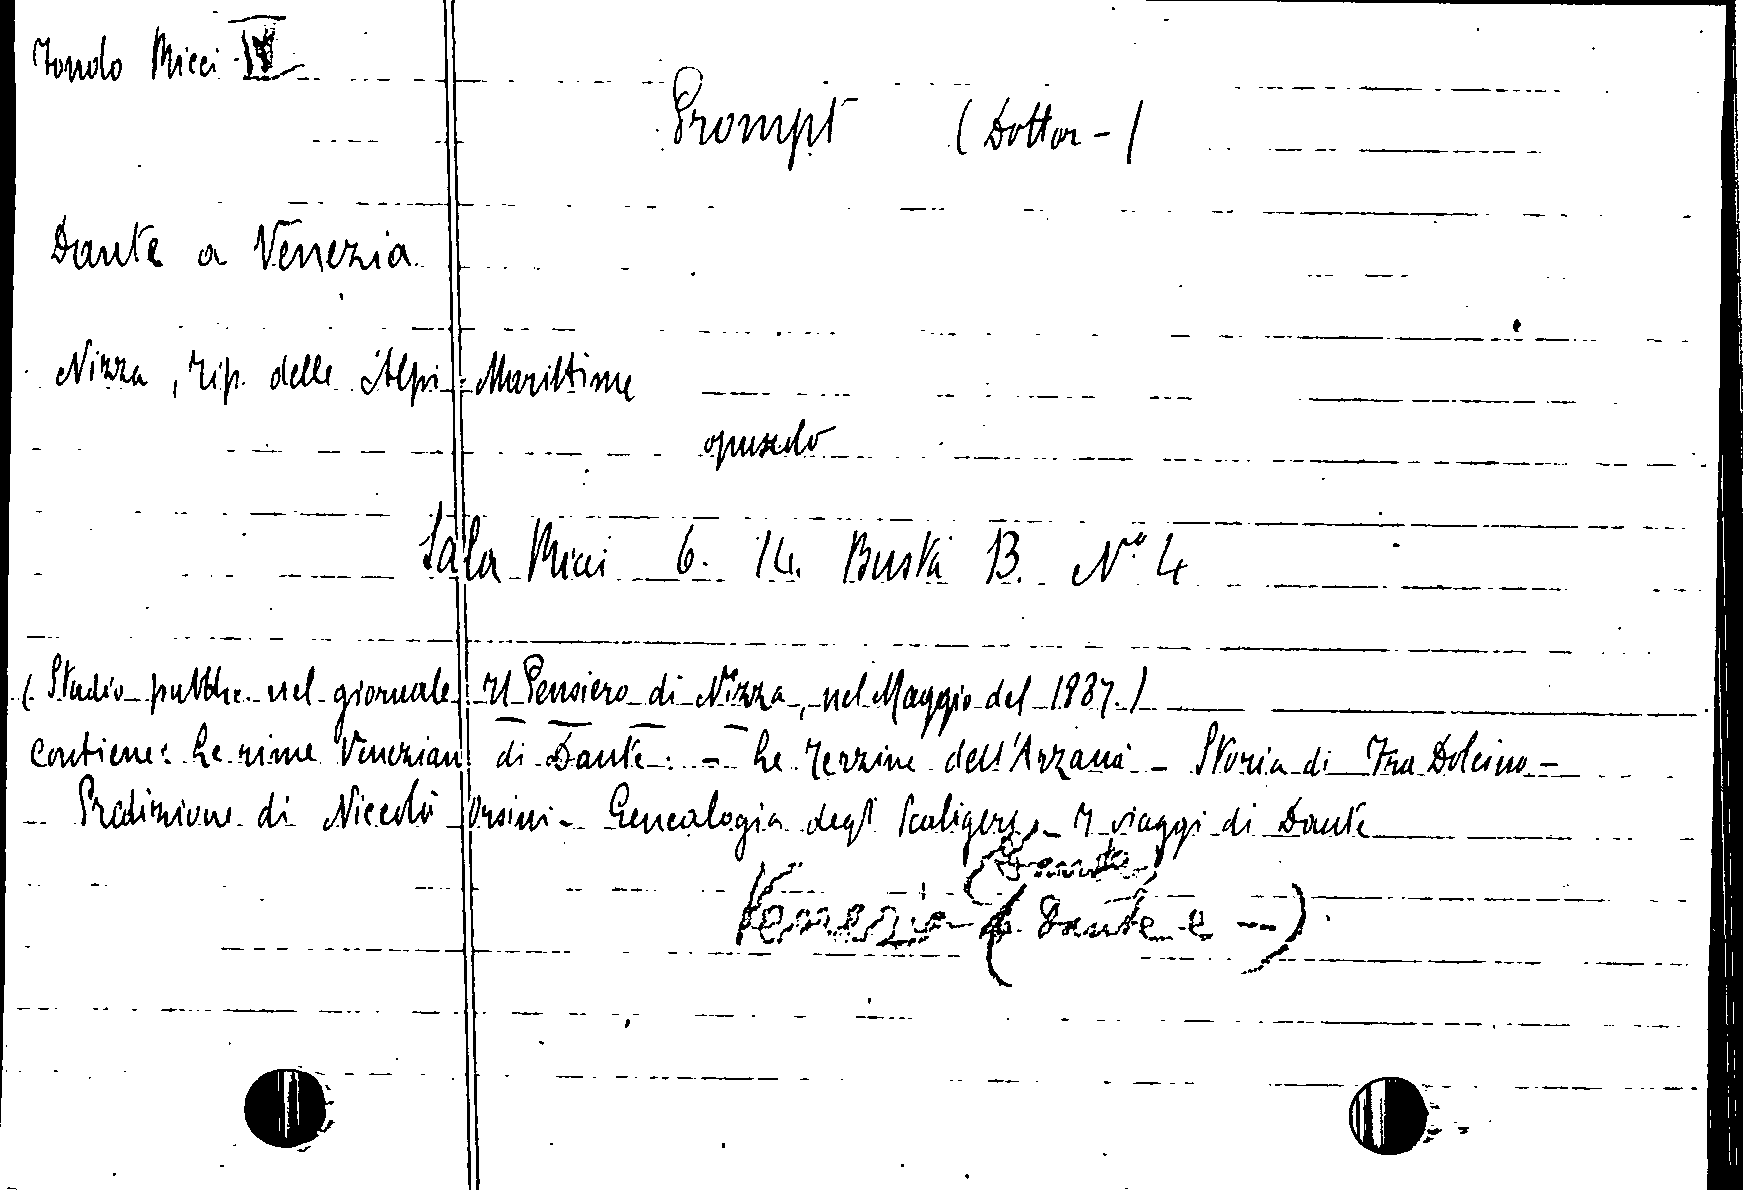 Fondo Ricci IV
Prompt (Dottor -)
Dante a Venezia
Nizza, tip. delle Alpi-Marittime
opuscolo
Sala Ricci 6. 14. Busta B. N° 4
(Studio pubbl. nel giornale Il Pensiero di Nizza, nel Maggio del 1887.)
contiene: Le rime Veneziane di Dante. - Le Terzine dell'Arzanà - Storia di Fra Dolcino -
- Predizione di Niccolò Orsini - Genealogia degl' Scaligeri - I viaggi di Dante
(Dante)
Venezia (Dante e -)